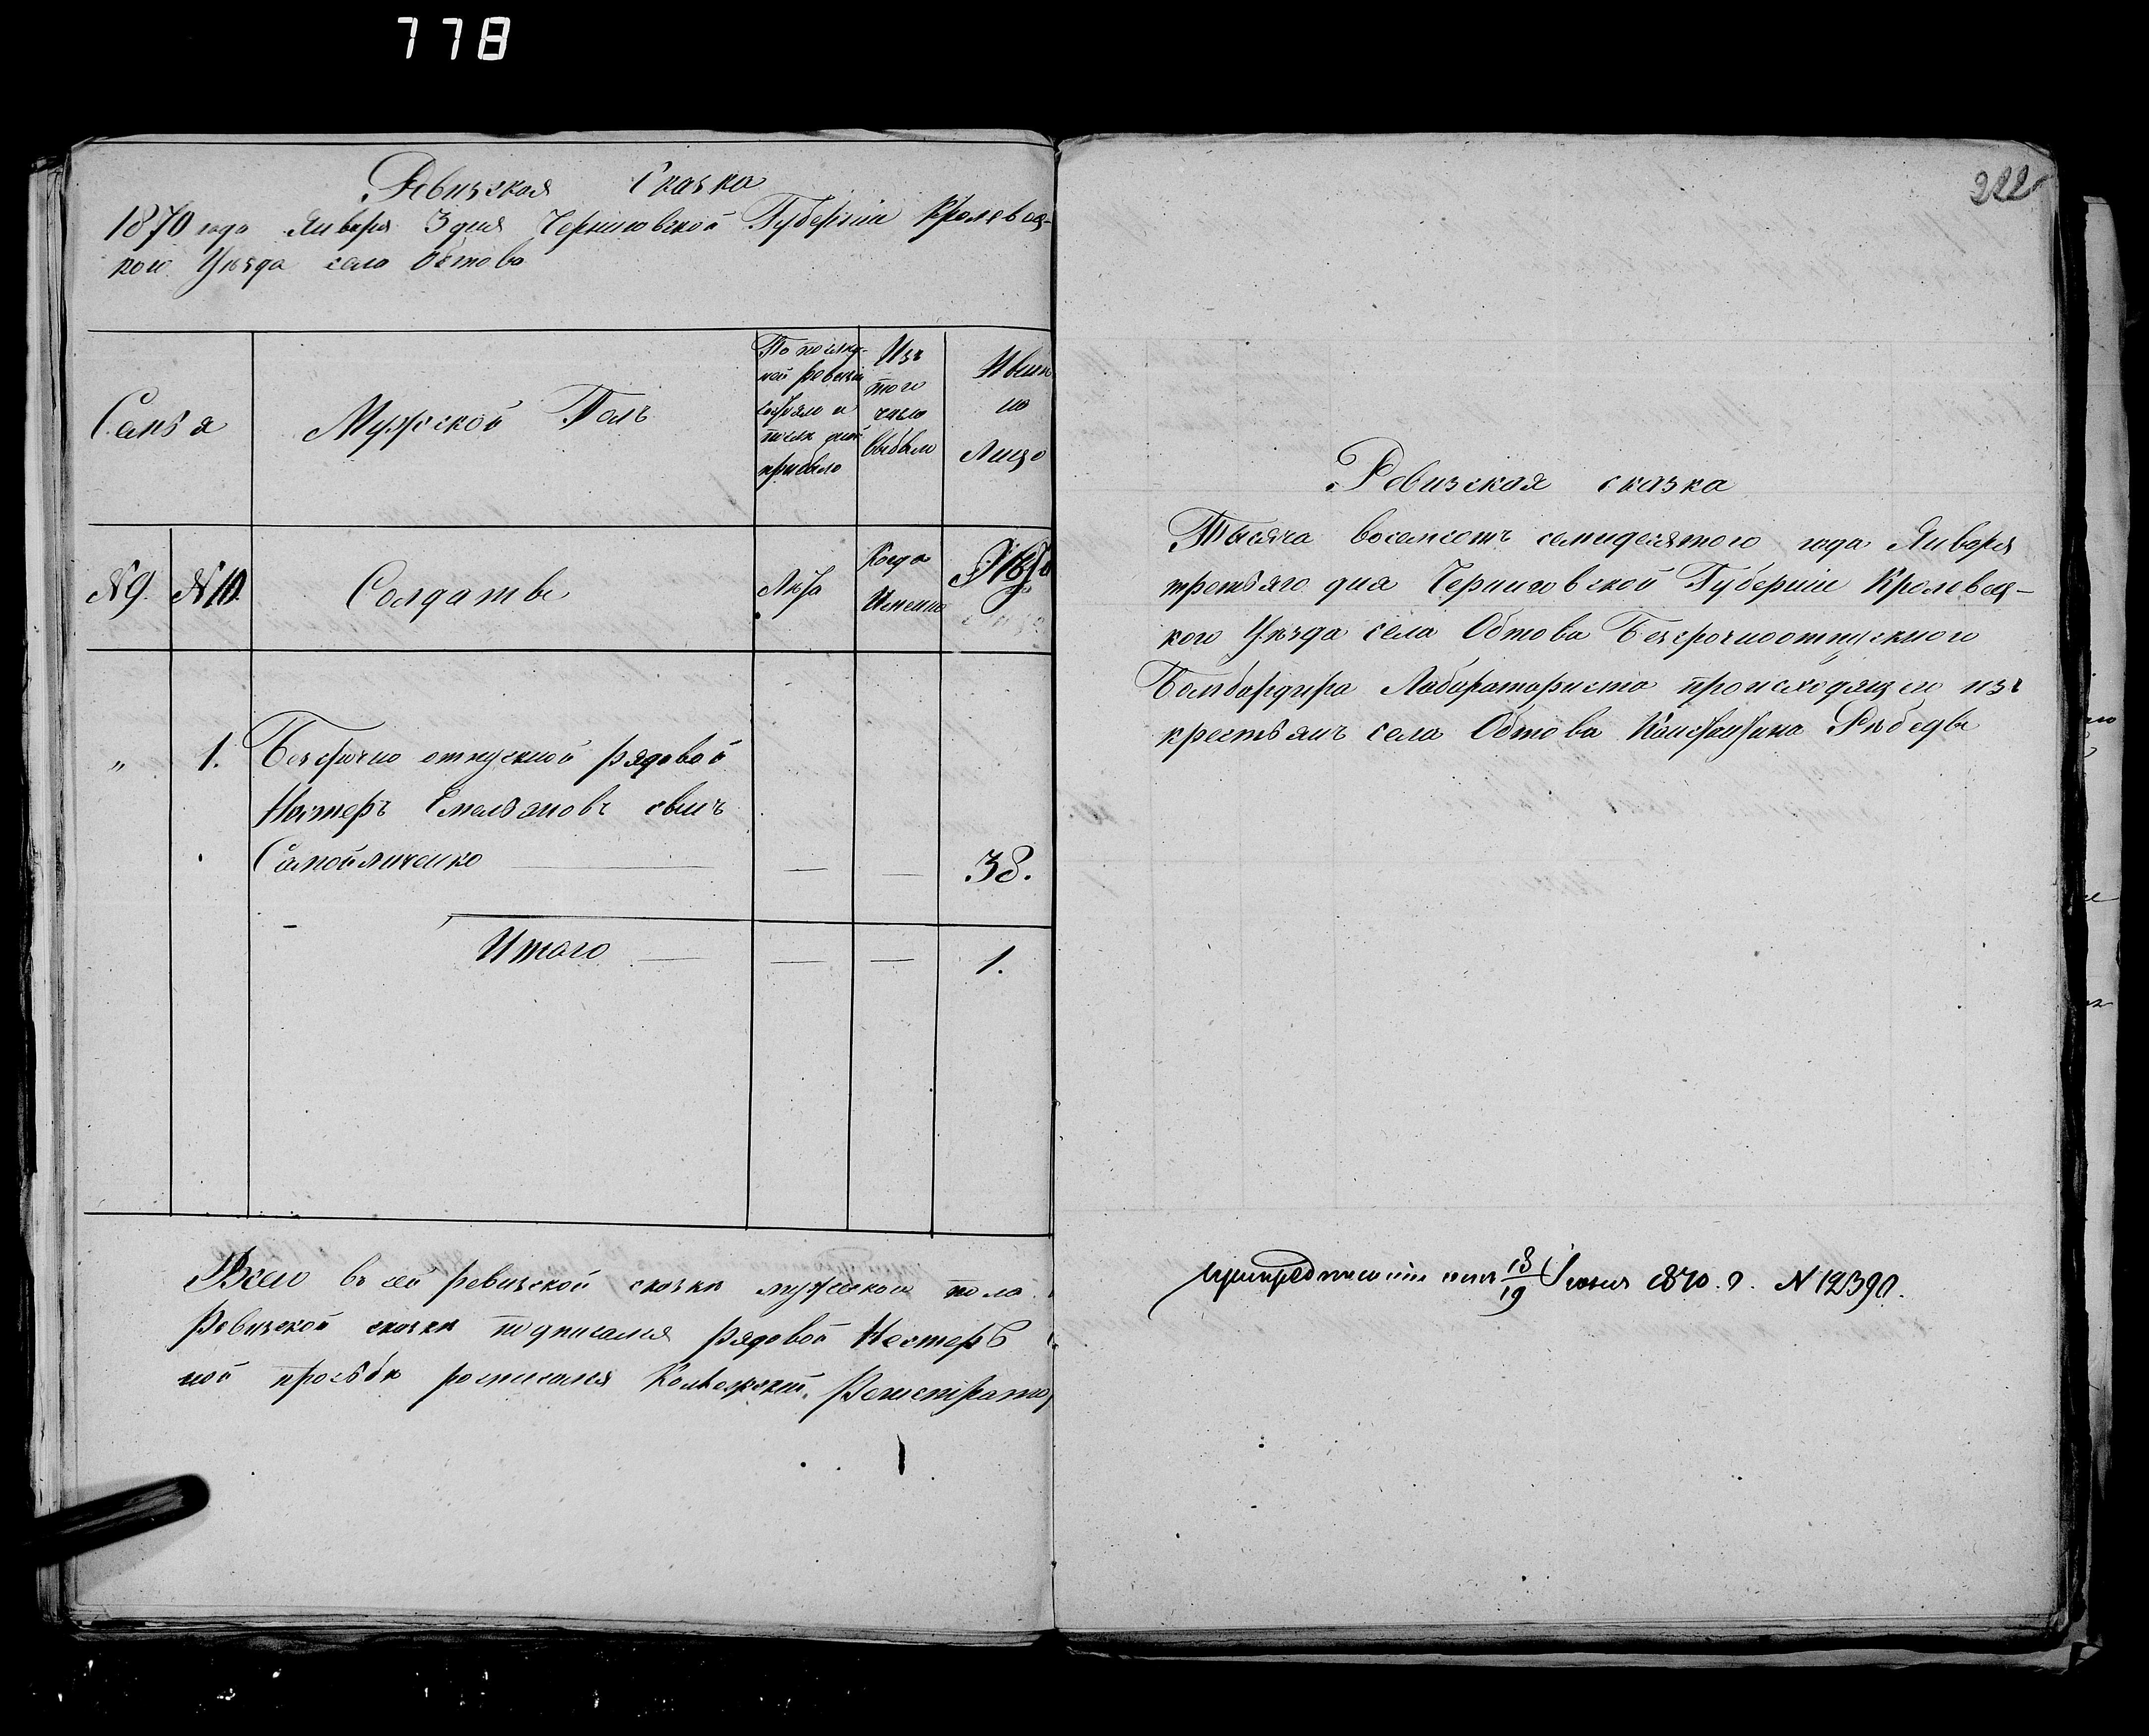 778
Ревизская Сказка
1870 года Января 3 дня Черниговской Губерніи Кролевец-
кого Уѣзда села Обтова
Семья
Мужской Полъ
По послѣд-
ней ревизіи
состояло и
послѣ того
прибыло
Изъ
того
числа
выбыло
Нынѣ
на
Лицо
№ 9. № 10. Солдаты Лѣта Когда Именно Лѣта
„ 1. Безсрочно отпускной рядовой
Нестеръ Емельяновъ сынъ
Самойличенко — — 38.
Итого — — — 1.
Всего въ сей ревизской сказки мужеского пола
Ревизской сказки подписался рядовой Нестеръ
ной прозьбѣ росписался Колежскій Регистрато
222
Ревизская сказка
Тысяча восемсотъ семидесятого года Января
третьяго дня Черниговской Губерніи Кролевец-
кого Уѣзда села Обтова Безсрочноотпускного
Бомбардира Лабораториста происходящего изъ
крестьянъ села Обтова Константина Рѣбеды
при предписаніи отъ 18/19 Іюня 1870 г. № 12390.